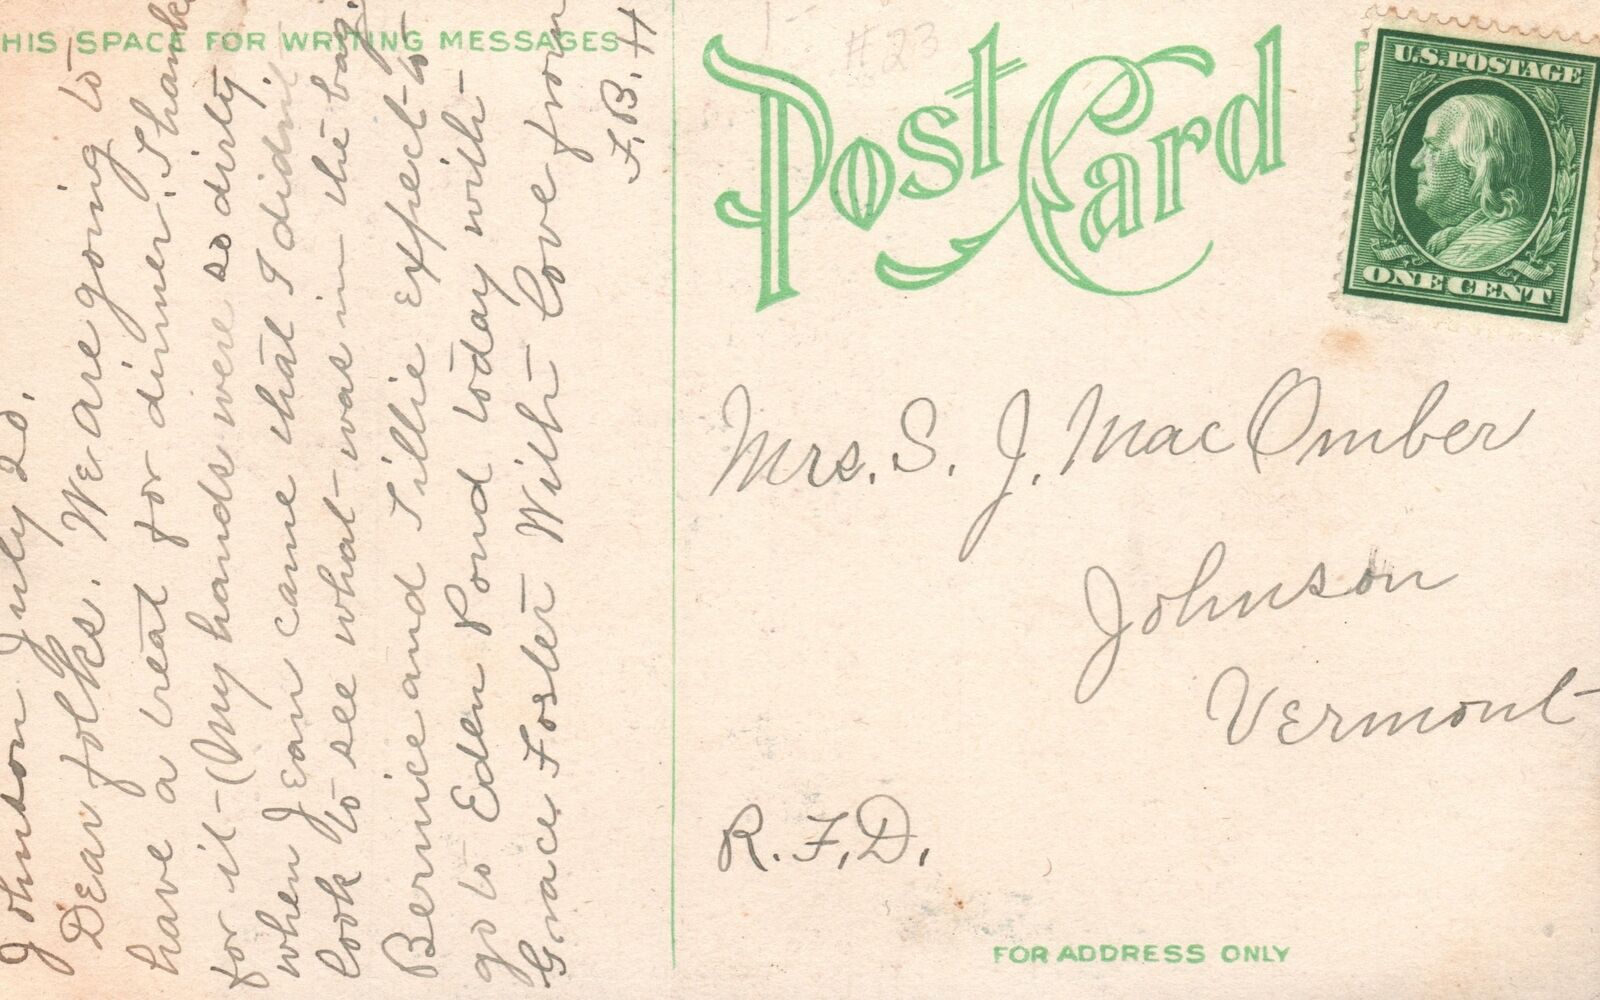 HIS SPACE FOR WRITING MESSAGES
Johnson July 20.
Dear folks. We are going to
have a treat for dinner. Thanks
for it - (My hands were so dirty
when Jean came that I didn't
look to see what was in the bag.
Bernice and Tillie expect to
go to Eden Pond today with
Grace Foster With love from
F.B.H
#23
Post Card
U.S. POSTAGE
ONE CENT
Mrs. S. J. MacOmber
Johnson
Vermont
R.F.D.
FOR ADDRESS ONLY